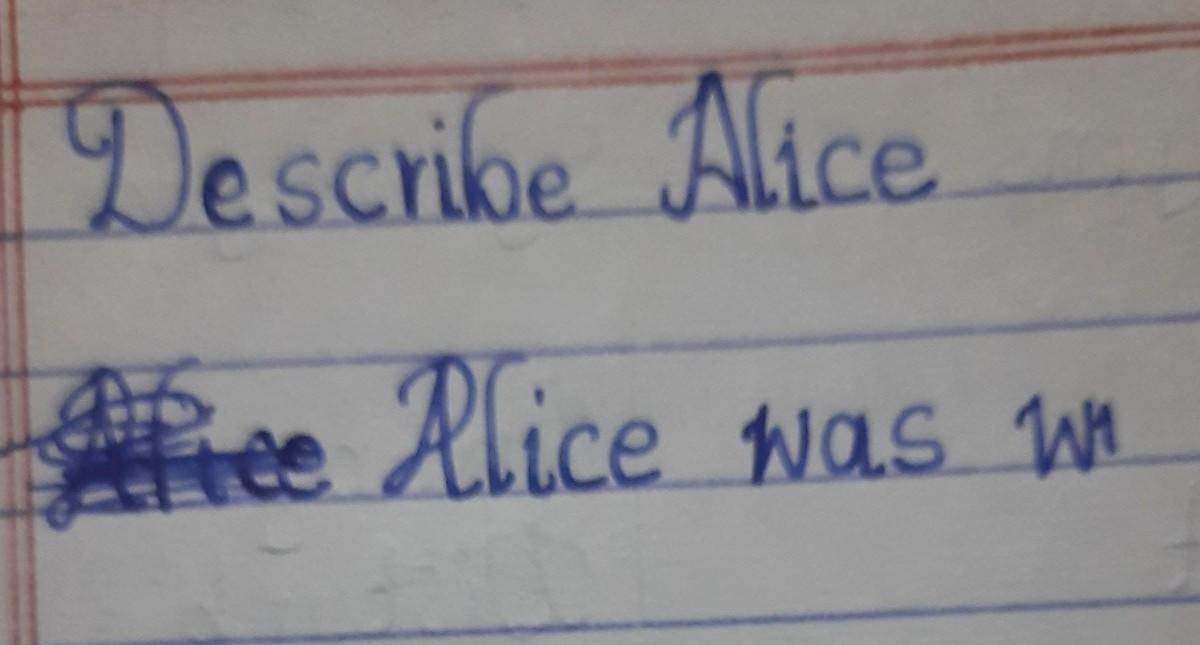 Describe Alice
Alice was